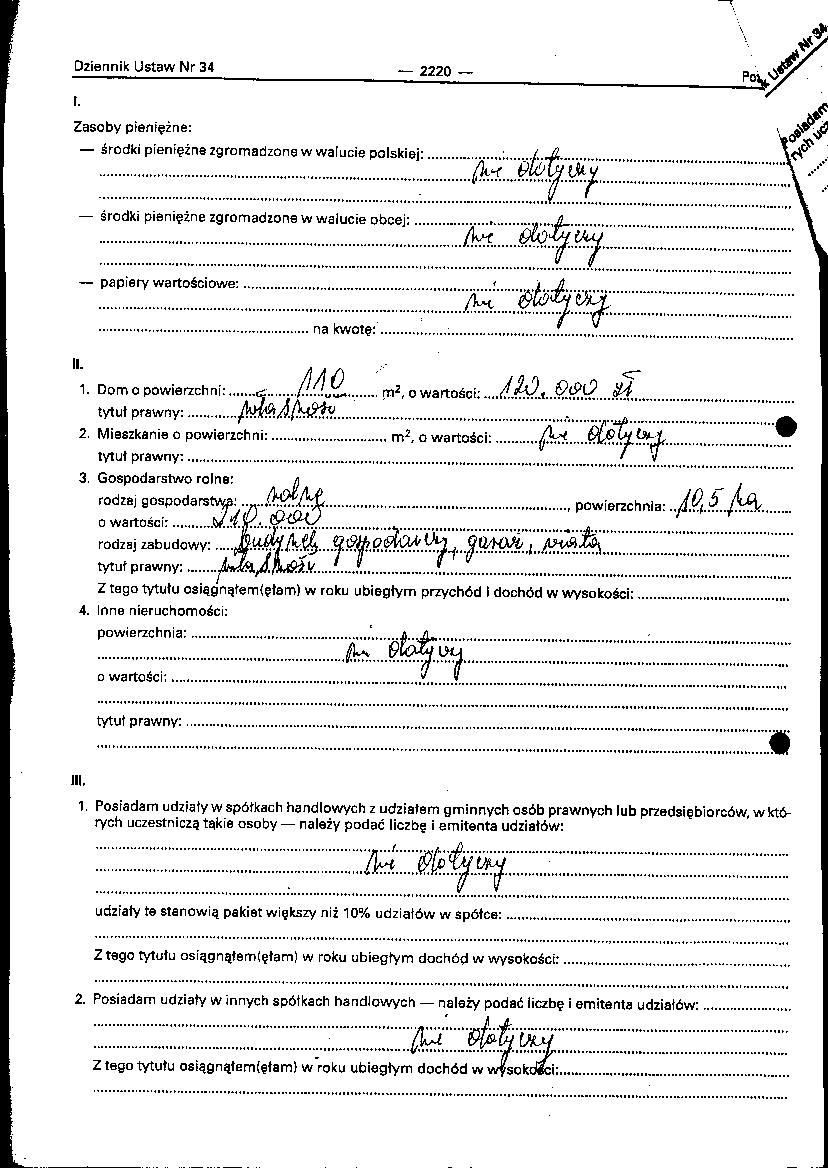 Dziennik Ustaw Nr 34 — 2220 — Poz
k Ustaw Nr 34
Posiadam
rych ucz
I.
Zasoby pieniężne:
— środki pieniężne zgromadzone w walucie polskiej:
nie dotyczy
— środki pieniężne zgromadzone w walucie obcej:
nie dotyczy
— papiery wartościowe:
nie dotyczy
na kwotę:
II.
1. Dom o powierzchni: 110 m², o wartości: 120.000 zł
tytuł prawny: własność
2. Mieszkanie o powierzchni: m², o wartości: nie dotyczy
tytuł prawny:
3. Gospodarstwo rolne:
rodzaj gospodarstwa: rolne, powierzchnia: 10,5 ha
o wartości: 210.000
rodzaj zabudowy: budynek gospodarczy, garaż, wiata
tytuł prawny: własność
Z tego tytułu osiągnąłem(ęłam) w roku ubiegłym przychód i dochód w wysokości:
4. Inne nieruchomości:
powierzchnia:
nie dotyczy
o wartości:
tytuł prawny:
III.
1. Posiadam udziały w spółkach handlowych z udziałem gminnych osób prawnych lub przedsiębiorców, w któ-
rych uczestniczą takie osoby — należy podać liczbę i emitenta udziałów:
nie dotyczy
udziały te stanowią pakiet większy niż 10% udziałów w spółce:
Z tego tytułu osiągnąłem(ęłam) w roku ubiegłym dochód w wysokości:
2. Posiadam udziały w innych spółkach handlowych — należy podać liczbę i emitenta udziałów:
nie dotyczy
Z tego tytułu osiągnąłem(ęłam) w roku ubiegłym dochód w wysokości: